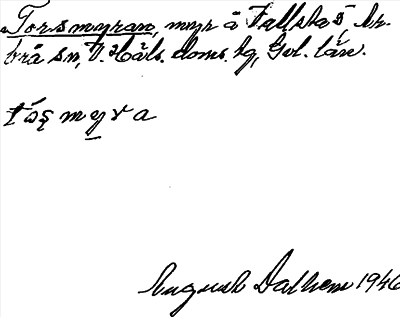 Torsmyran, myr å Fallsta, Är-
brå sn, V. Häls. doms. hg, Gvl. län.
tóş myra
August Dalhem 1946